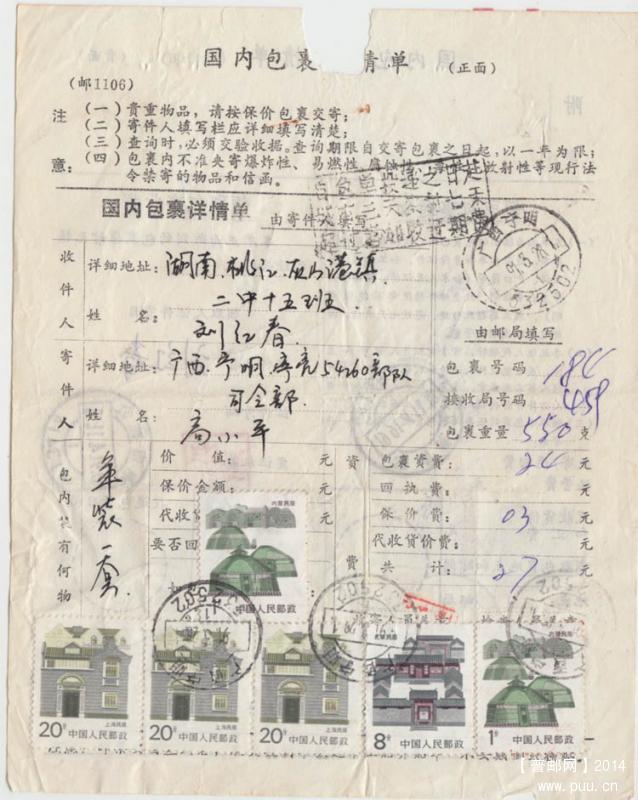 国内包裹 情单 (正面)
(邮1106)
注意:
(一)贵重物品,请按保价包裹交寄;
(二)寄件人填写栏应详细填写清楚;
(三)查询时,必须交验收据。查询期限自交寄包裹之日起,以一年为限;
(四)包裹内不准夹寄爆炸性、易燃性、腐蚀性、 放射性等现行法
令禁寄的物品和信函。
国内包裹详情单 由寄件人填写
广西宁明
532502
收件人
详细地址: 湖南.桃江.灰山港镇.
二中十五班
姓名: 刘红春.
由邮局填写
寄件人
详细地址: 广西.宁明.亭亮54260部队
司令部.
姓名: 高小平
包裹号码 184
接收局号码 459
包裹重量 550 克
包内装有何物
军装一套
价值: 元
保价金额: 元
代收货 元
要否回
资费
包裹资费: 24 元
回执费: 元
保价费: 03 元
代收货价费: 元
共计: 27 元
内蒙民居
中国人民邮政
20分 中国人民邮政 上海民居
20分 中国人民邮政 上海民居
20分 中国人民邮政 上海民居
北京民居
8分 中国人民邮政
内蒙民居
1分 中国人民邮政
【普邮网】2014
www.puu.cn